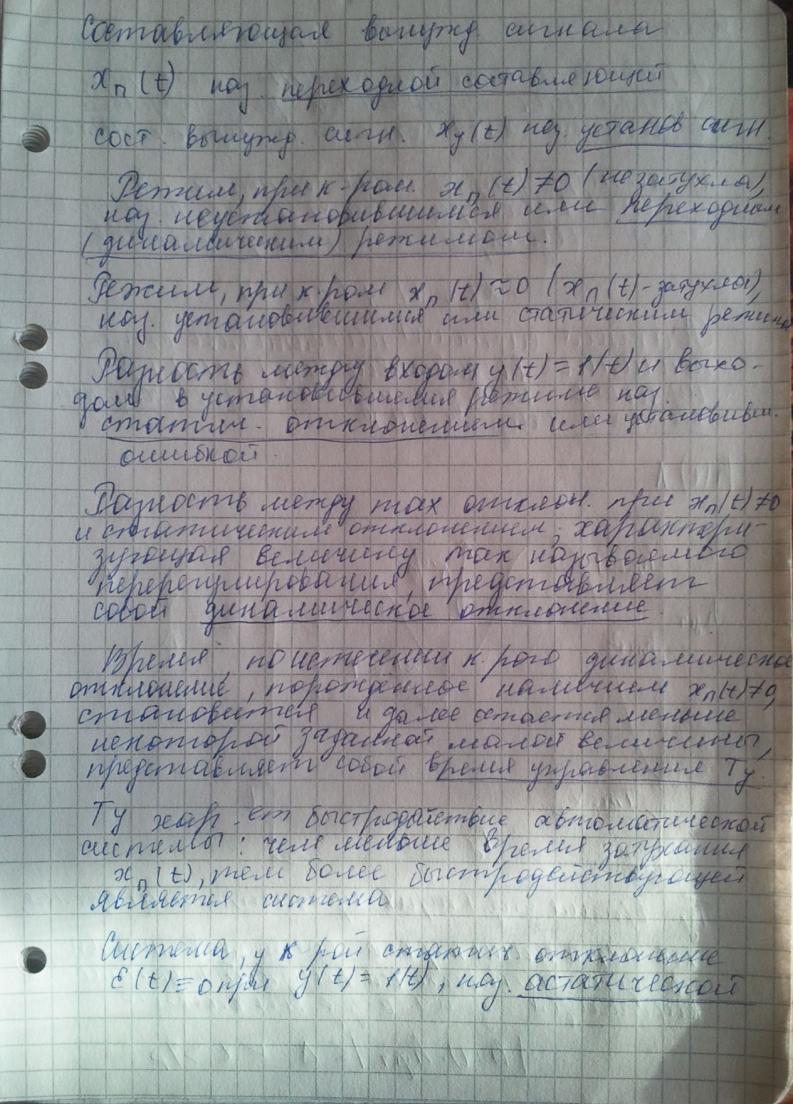 Составляющая вынужд сигнала
xп(t) наз. переходной составляющей
сост. вынужд. сигн. xу(t) наз. установ сигн.
Режим, при к-ром xп(t)≠0 (не затухла),
наз. неустановившимся или переходным
(динамическим) режимом.
Режим, при к.ром xп(t)≈0 (xп(t)-затухла),
наз. установившимся или статическим режим
Разность между входом y(t)=1(t) и выхо-
дом в установившемся режиме наз.
статич. отклонением или установивш.
ошибкой.
Разность между max отклон. при xп(t)≠0
и статическим отклонением, характери-
зующая величину так называемого
перерегулирования, представляет
собой динамическое отклонение.
Время, по истечении к.рого динамическое
отклонение, порождённое наличием xп(t)≠0,
становится и далее остается меньше
некоторой заданной малой величины,
представляет собой время управления Ту.
Ту хар-ет быстродействие автоматической
системы: чем меньше время затухания
xп(t), тем более быстродействующей
является система
Система, у к рой статич. отклонение
ε(t)≡0 при y(t)=1(t), наз. астатической